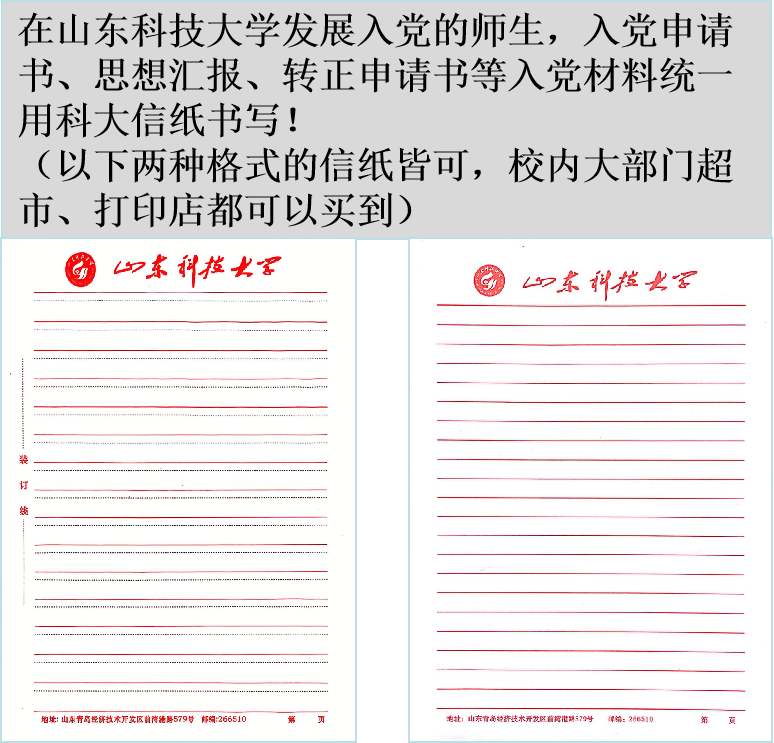 在山东科技大学发展入党的师生，入党申请
书、思想汇报、转正申请书等入党材料统一
用科大信纸书写！
（以下两种格式的信纸皆可，校内大部门超
市、打印店都可以买到）
山东科技大学
装
订
线
地址：山东青岛经济技术开发区前湾港路579号 邮编:266510 第 页
山东科技大学
地址：山东青岛经济技术开发区前湾港路579号 邮编：266510 第 页